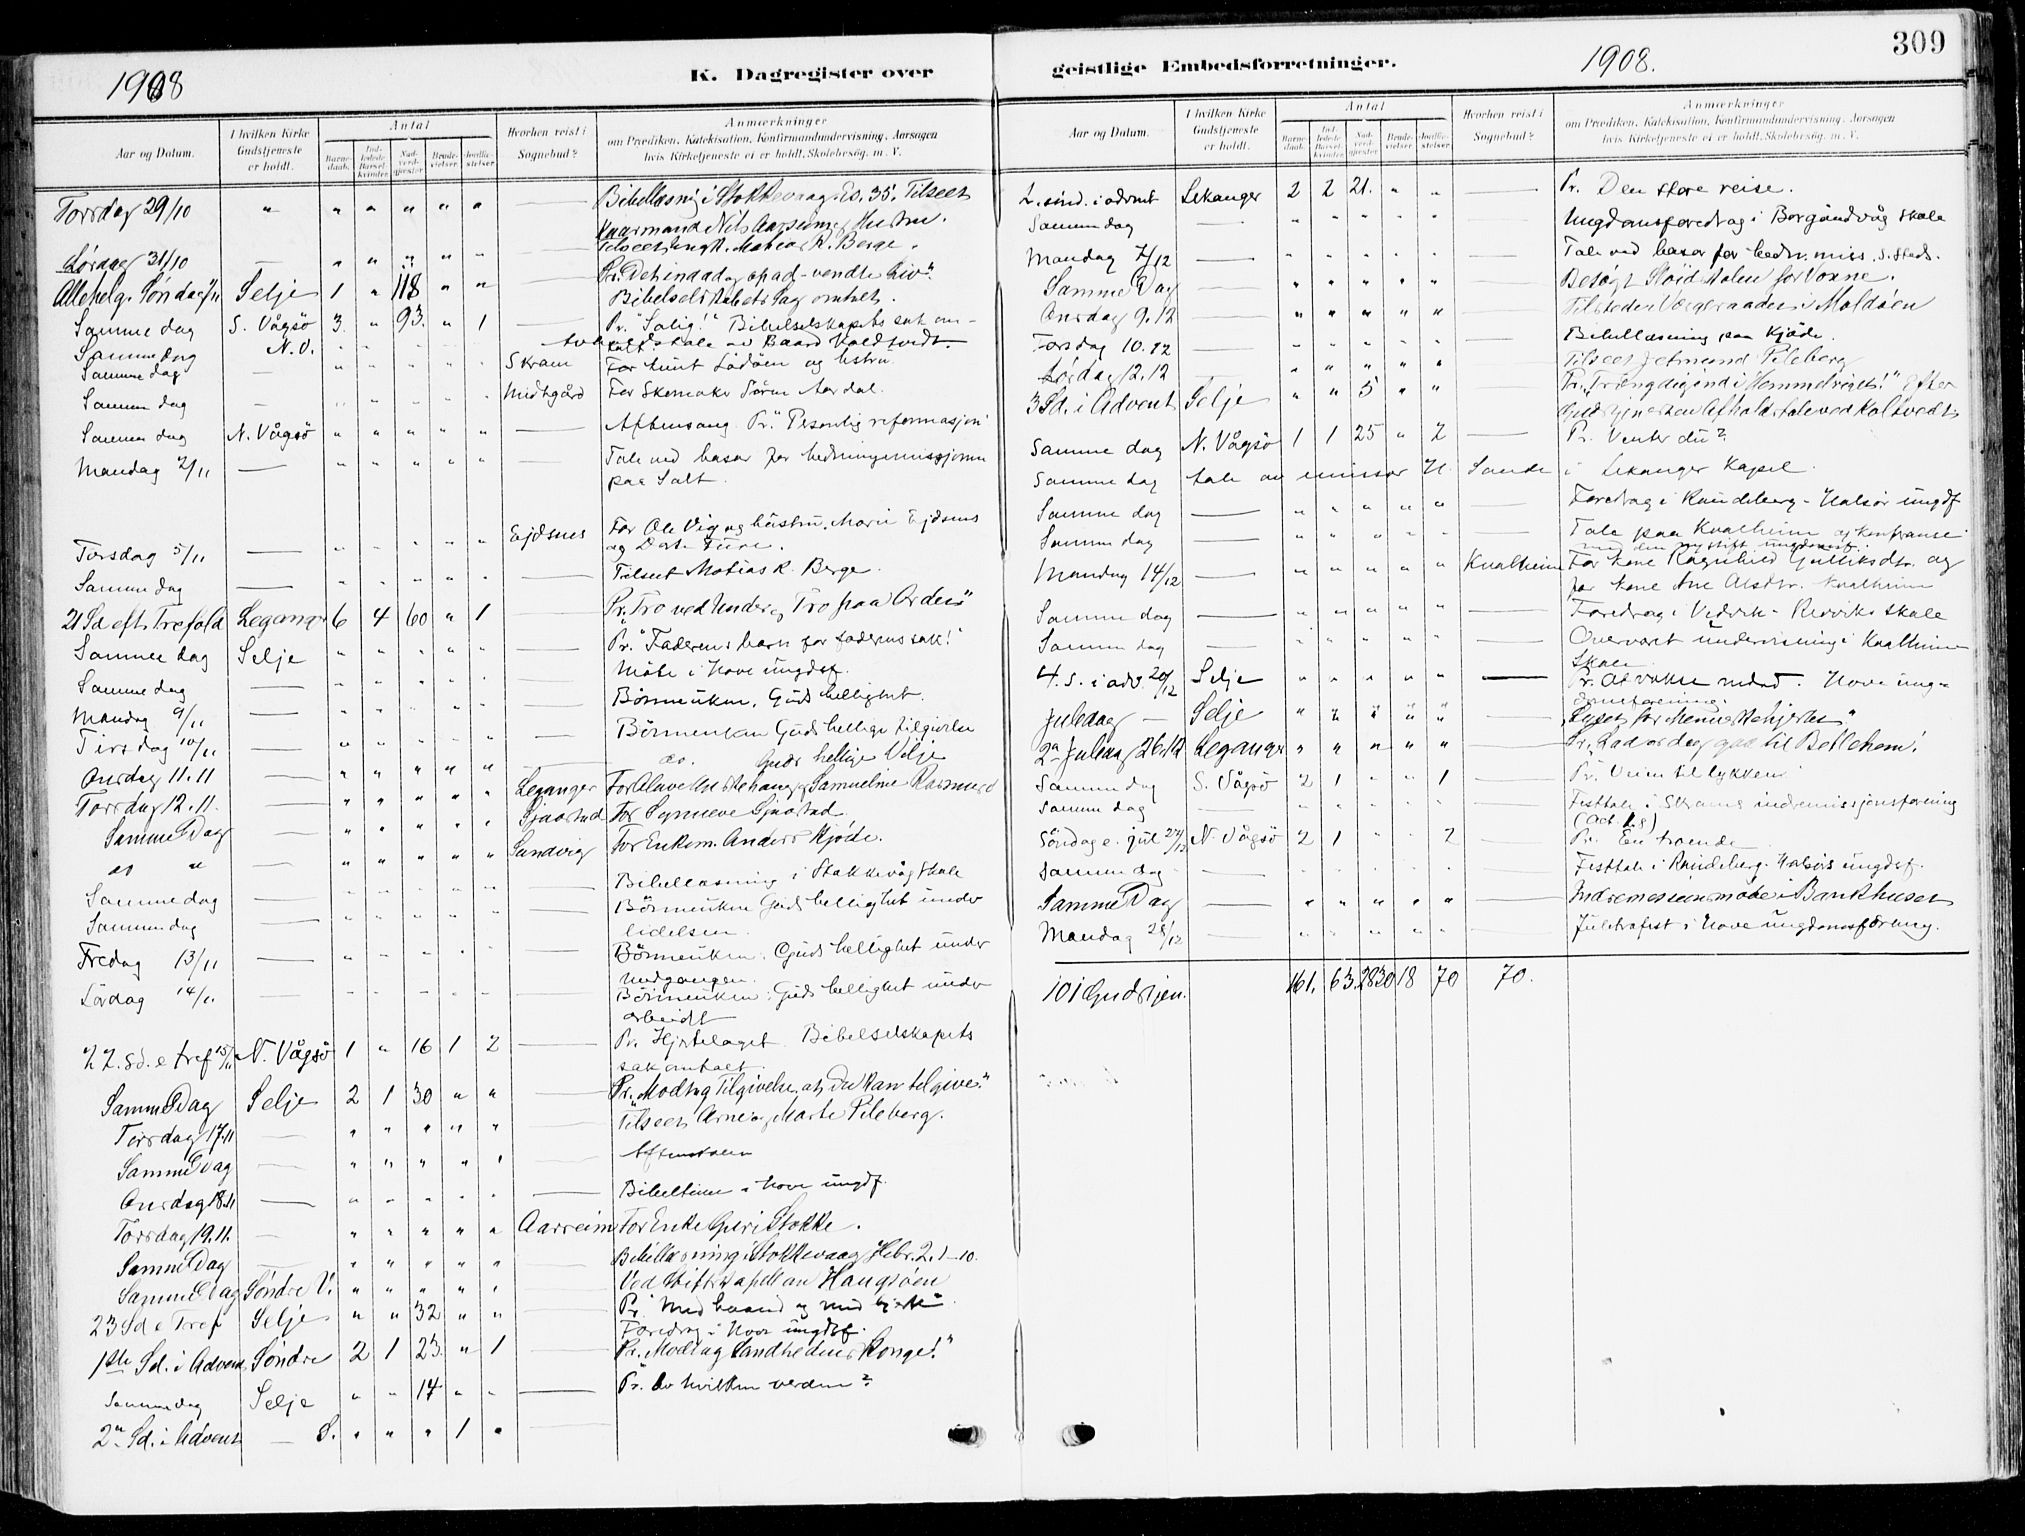 1908
K. Dagregister over
Aar og Datum. I hvilken Kirke Gudstjeneste er holdt. Antal Barnedaab. Indledede Barselkvinder. Nadverdgjæster. Brudevielser. Jordfæstelser. Hvorhen reist i Sognebud? Anmærkninger om Prædiken, Katekisation, Konfirmandundervisning, Aarsagen hvis Kirketjeneste ei er holdt, Skolebesøg, m. V.
Torsdag 29/10 " " " " " " Bibellæsning i Stokkevaag. Tilseet
Nils Aarseim
Lørdag 31/10 " " " " " Tilseet Matias R. Berge.
Allehelg. Søndag 1/11 Selje 1 " 118 " " Pr. Det indad og opad-vendte Liv".
Bibelselskabets Sag omtalt.
Samme dag S. Vågsö 3 " 93. " 1 Pr. "Salig!" Bibelselskapets sak om-
talt
Samme dag N.V. Avholdstale av Baard Koldtvedt.
Samme dag Skram For
Samme dag Midtgård For Skomaker
Samme dag N. Vågsö " " " " " Aftensang. Pr. Personlig reformasjon
Mandag 2/11 " " " " " Tale ved basar for hedningemissjonen
paa Salt.
Torsdag 5/11 " " " " " Ejdsnes For Ole Vig og hustru, Marie Ejdsnes
og
Samme dag " " " " " Tilseet Matias R. Berge.
21 Sd eft. Trefold. Leganger 6 4 60 " 1 Pr. "Tro ved Under og Tro paa Ordet"
Samme dag Selje " " " " " Pr. "Faderens barn for faderens sak!"
Samme dag " " " " " Møte i Hove ungdsf.
Mandag 9/11 " " " " " Bönneuken. Guds hellighet.
Tirsdag 10/11 " " " " " Bönneuken Guds hellige tilgivelse
Onsdag 11.11 " " " " " do. Guds hellige Vilje
Torsdag 12.11. " " " " " Leganger For
Samme Dag " " " " " Sjaastad For Synneve Sjaastad.
do " " " " " " Sandvig For Enkem. Anders Kjøde.
Samme dag " " " " " Bibellæsning i Stokkevåg Skole
Samme dag " " " " " Bönneuken Guds hellighet under
lidelsen.
Fredag 13/11 " " " " " Bönneuken. Guds hellighet under
medgangen.
Lördag 14/11 " " " " " Bönneuken: Guds hellighet under
arbeidet
22. sd. e tref 15/11 N. Vågsö 1 " 16 1 2 Pr. Hjertelaget. Bibelselskapets
sak omtalt.
Samme Dag Selje 2 1 30 " " Pr. "Modtag Tilgivelse, at Du kan tilgive."
Tirsdag 17.11 " " " " " Tilseet Arne og Marte Pileberg.
Samme Dag " " " " "
Onsdag 18.11 " " " " " Bibeltime i Hove ungdf.
Torsdag 19.11. " " " " " Aarseim For Enke Guri Stokke.
Samme Dag " " " " " Bibellæsning i Stokkevaag Hebr. 2. 1-10.
Samme Dag Søndre V. " " " " " Ved Stiftskapellan Haugsöen
23 Sd e Tref Selje " " 32 " " Pr. "Med haand og med hjerte".
Foredrag i Hove ungdsf.
1ste Sd. i Advent Søndre 2 1 23. " 1 Pr. "Modtag Sandhedens Konge!"
Samme dag Selje " " 14 " " Pr. "Av hvilken verden?
2n Sd. i Advent S. " " " 1 "
309
geistlige Embedsforretninger.
1908.
Aar og Datum. I hvilken Kirke Gudstjeneste er holdt. Antal Barnedaab. Indledede Barselkvinder. Nadverdgjæster. Brudevielser. Jordfæstelser. Hvorhen reist i Sognebud? Anmærkninger om Prædiken, Katekisation, Konfirmandundervisning, Aarsagen hvis Kirketjeneste ei er holdt, Skolebesög, m. V.
2. sönd. i advent Lekanger 2 2 21. " " Pr. Den store reise.
Samme dag " " " " " Ungdomsforedrag i Borgundvåg skole
Mandag 7/12 " " " " " Tale ved basar for hedn. miss. s. steds.
Samme Dag " " " " " Besøgt Sløidskolen for Voxne.
Onsdag 9.12 " " " " " Tilstede i Vergeraadet i Maldøen
Torsdag 10.12 " " " " " Bibellæsning paa Kjöde.
Lørdag 12.12 " " " " " Tilseet Jetmund Pileberg
3 Sd. i Advent Selje " " 5 " " Pr. "Træng dig ind i Himmelriget!" Efter
Gudstjenesten Afholdstale ved Koltvedt
Samme dag N. Vågsö 1 1 25 " 2 Pr. Venter du?
Samme dag tale av emissær H. Sande i Lekanger Kapel.
Samme dag " " " " " Foredrag i Raudeberg-Halsör ungdf
Samme dag " " " " " Tale paa Kvalheim og konferanse
med den nystift. ungdomsf.
Mandag 14/12 " " " " " Kvalheim For kone Ragnhild Gulliksdtr. og
for kone Ane Alsdtr. Kvalheim
Samme dag " " " " " Foredrag i Vedvik-Revviks skole
Samme dag " " " " " Overvært undervisning i Kvalheim
skole.
4. S. i adv. 20/12 Selje " " " " " Pr. At vokse nedad. Hove ung-
domsforening.
Juledag Selje " " " " " "Lyset for Menneskehjertet"
2n Juledag 26.12 Leganger " " " " " Pr. Lad os da gaa til Betlehem!
Samme dag S. Vågsö 2 1 " " 1 Pr. Veien til lykken
Samme dag " " " " " Festtale i Skrams indremissjonsforening
Søndag e. jul 27/12 N. Vågsö 2 1 " " 2 Pr. En troende
Samme dag " " " " " Festtale i Raudeberg-Halsörs ungdsf.
Samme Dag " " " " " Indremissionsmøde i Bankhuset
Mandag 28/12 " " " " " Juletræfest i Hove ungdomsforening.
101 Gudstjen. 161. 63. 2830 18 70 70.